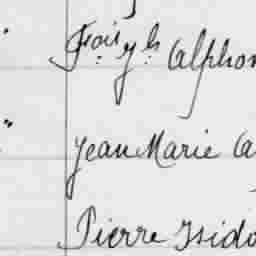 Frois yh Alphon
Jean Marie A
Pierre Isido